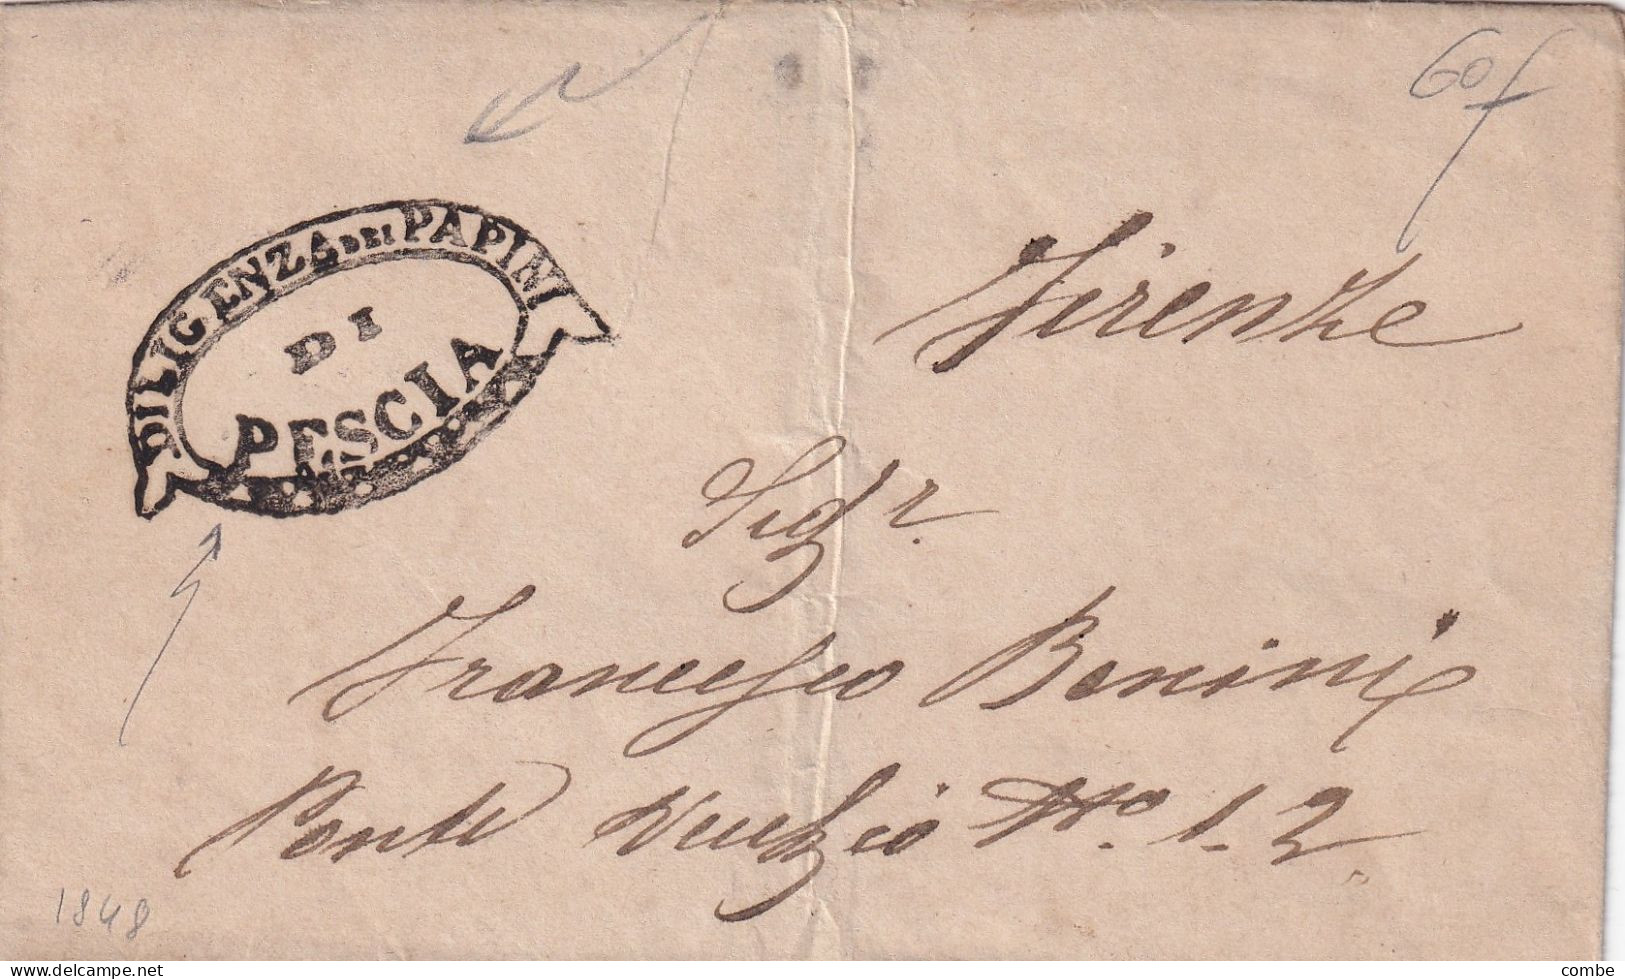 60f
DILIGENZA DEI PAPINI
DI
PESCIA
Firenze
Sigr.
Francesco Bonini
Ponte Vecchio No. 1-2
1848
www.delcampe.net
combe